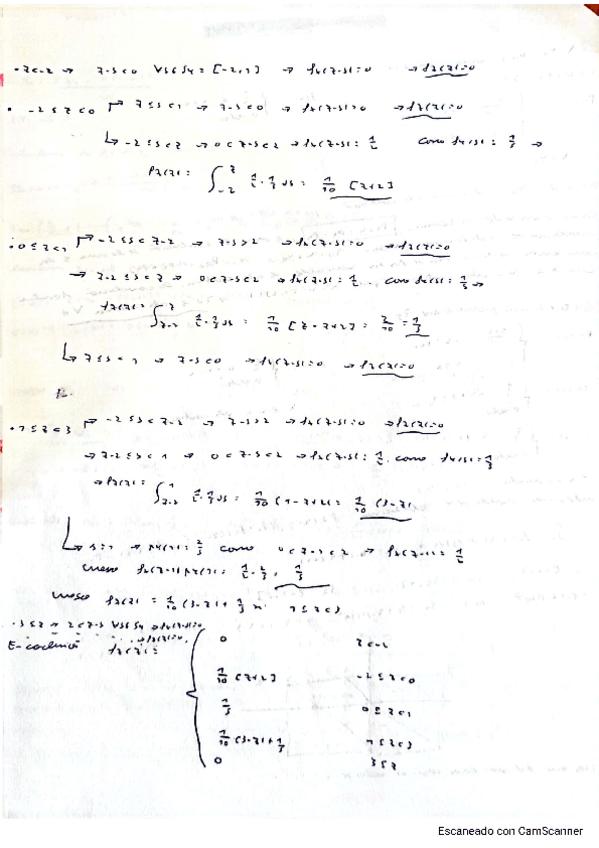 · z<-2 → z-s<0 ∀s∈S_Y=[-2,1] → f_X(z-s)=0 → f_Z(z)=0
· -2≤z<0 z≤s<1 → z-s<0 → f_X(z-s)=0 → f_Z(z)=0
↳ -2≤s<z → 0<z-s<2 → f_X(z-s)=1/2 Como f_Y(s)=1/5 →
f_Z(z)= ∫_{-2}^{z} 1/2·1/5 ds = 1/10 [z+2]
· 0≤z<1 -2≤s<z-2 → z-s>2 → f_X(z-s)=0 → f_Z(z)=0
→ z-2≤s<z → 0<z-s<2 → f_X(z-s)=1/2. Como f_Y(s)=1/5 →
f_Z(z)= ∫_{z-2}^{z} 1/2·1/5 ds = 1/10 [z-z+2] = 2/10 = 1/5
↳ z≤s<1 → z-s<0 → f_X(z-s)=0 → f_Z(z)=0
· 1≤z<3 -2≤s<z-2 → z-s>2 → f_X(z-s)=0 → f_Z(z)=0
→ z-2≤s<1 → 0<z-s<2 → f_X(z-s)=1/2. como f_Y(s)=1/5
→ f_Z(z)= ∫_{z-2}^{1} 1/2·1/5 ds = 1/10 (1-z+2) = 1/10 (3-z)
↳ s=1 → = 2/5 como 0<z-1<2 → f_X(z-1)=1/2
luego = 1/2·2/5 = 1/5
luego f_Z(z) = 1/10 (3-z) + 1/5 1≤z<3
· 3≤z → 2<z-s ∀s∈S_Y → f_X(z-s)=0
→ f_Z(z)=0.
f_Z(z)=
0 z<-2
1/10 [z+2] -2≤z<0
1/5 0≤z<1
1/10 (3-z)+1/5 1≤z<3
0 3≤z
Escaneado con CamScanner